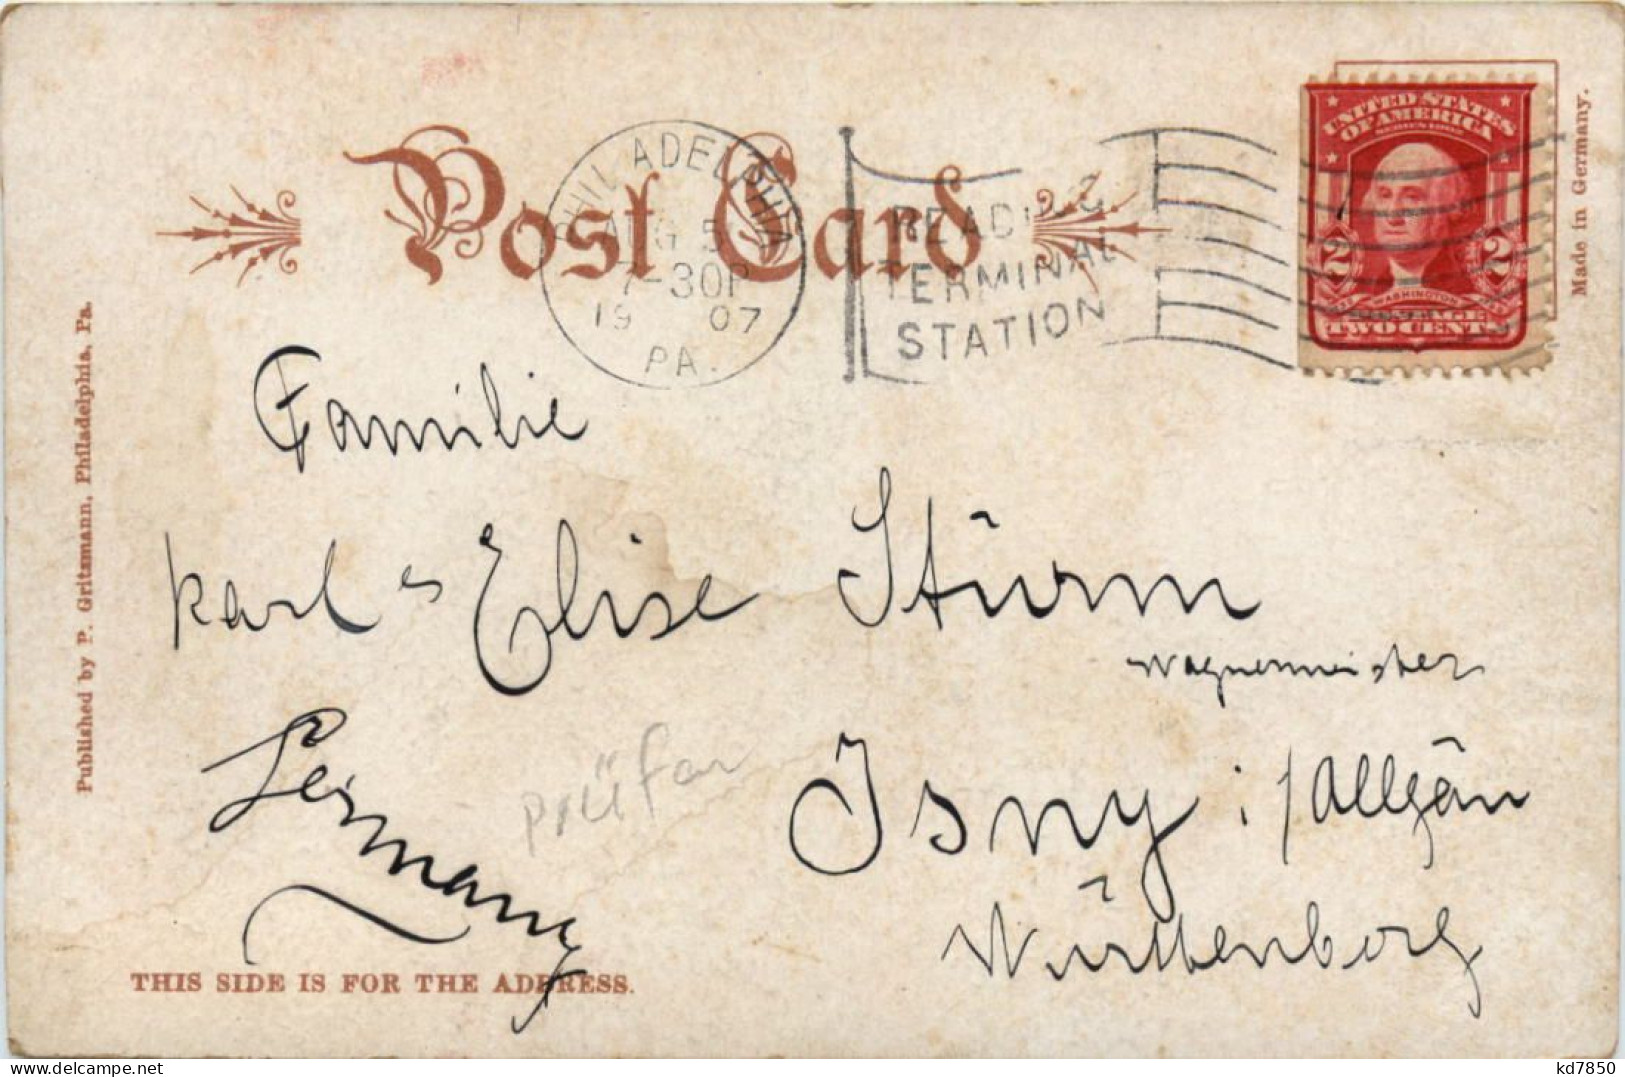 Post Card
PHILADELPHIA
AUG 5
7-30P
1907
PA.
READING
TERMINAL
STATION
UNITED STATES
OF AMERICA
SERIES 1902
2 2
WASHINGTON
TWO CENTS
Made in Germany.
Published by P. Gritzmann, Philadelphia, Pa.
Familie
Karl & Elise Stūrm
Wagnermeister
Isny i/Allgäu
Württenberg
Germany
THIS SIDE IS FOR THE ADDRESS.
kd7850